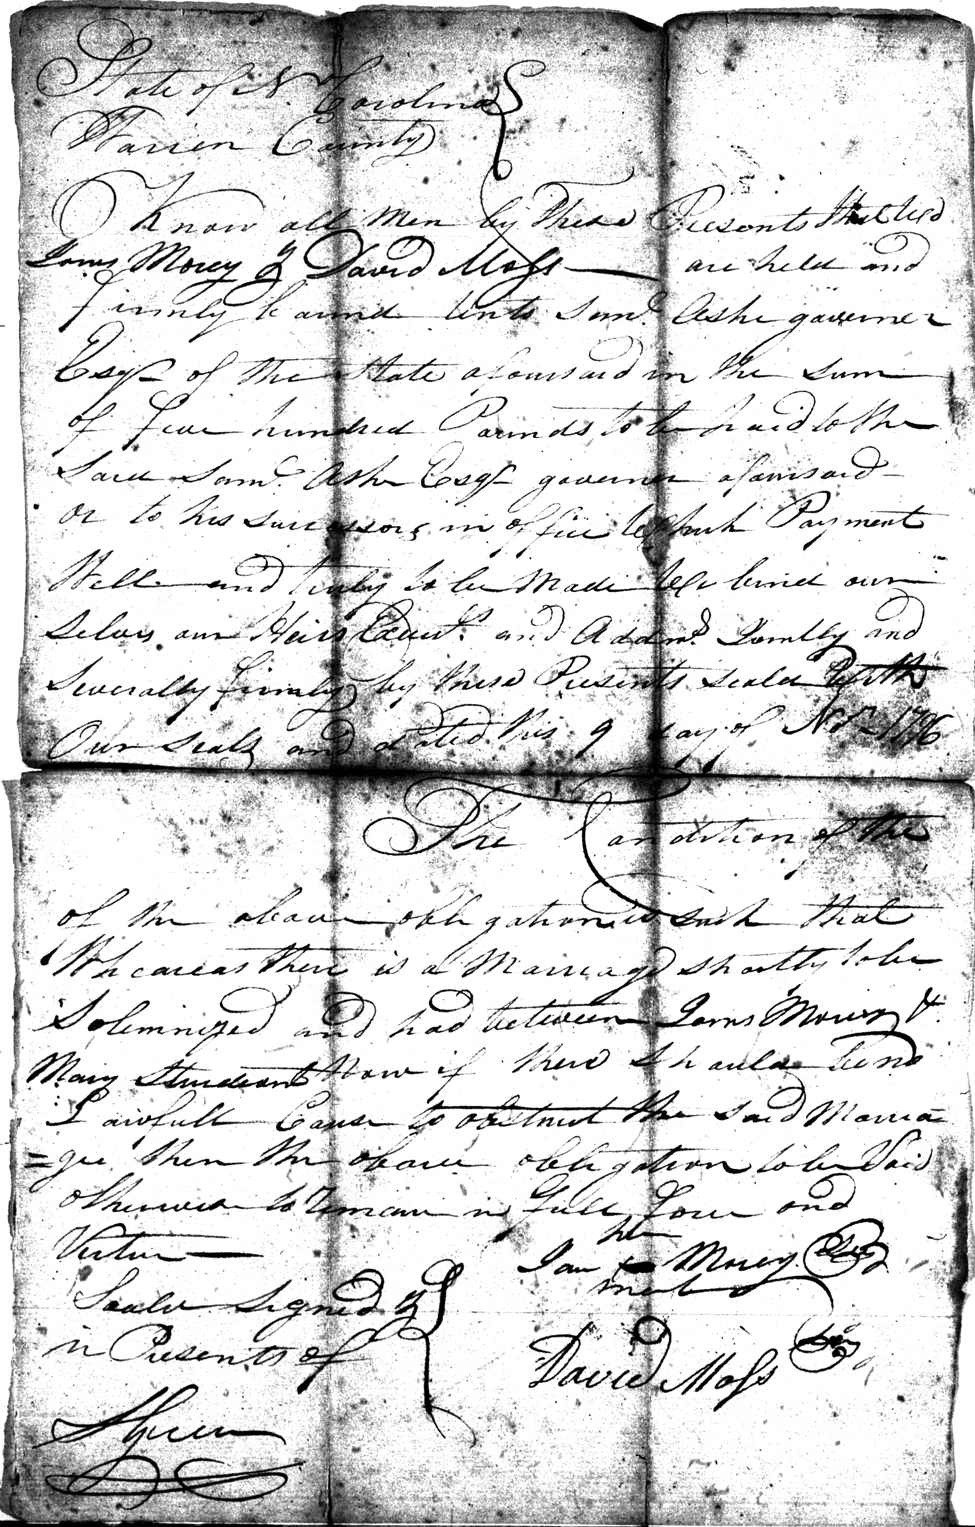 State of N. Carolina
Warren County
Know all Men by These Presents that we
Jams Morey & David Moss are held and
firmly bound unto Saml. Ashe governer
Esqr of the State aforesaid in the sum
of five hundred Pounds to be paid to the
said Saml. Ashe Esqr governer aforsaid
or to his successors in office Which Payment
Well and truly to be Made We bind our
selves our Heirs Execurs. and Admrs. Jointly and
severally firmly by these Presents sealed With
Our seals and dated this 9 day of Novr. 1796
The Condition of the
of the above obligation is such that
Wheareas there is a Marriage shortly to be
Solemnized and had between Jams Morey &
Mary Sturdivant Now if there should be no
Lawfull Cause to obstruct the said Marria
=ge then the above obligation to be Void
otherwise to remain in full force and
Virtue
his
Jam x Morey Seal
mark
Seald signed &
in Presents of
David Moss Seal
SGreen